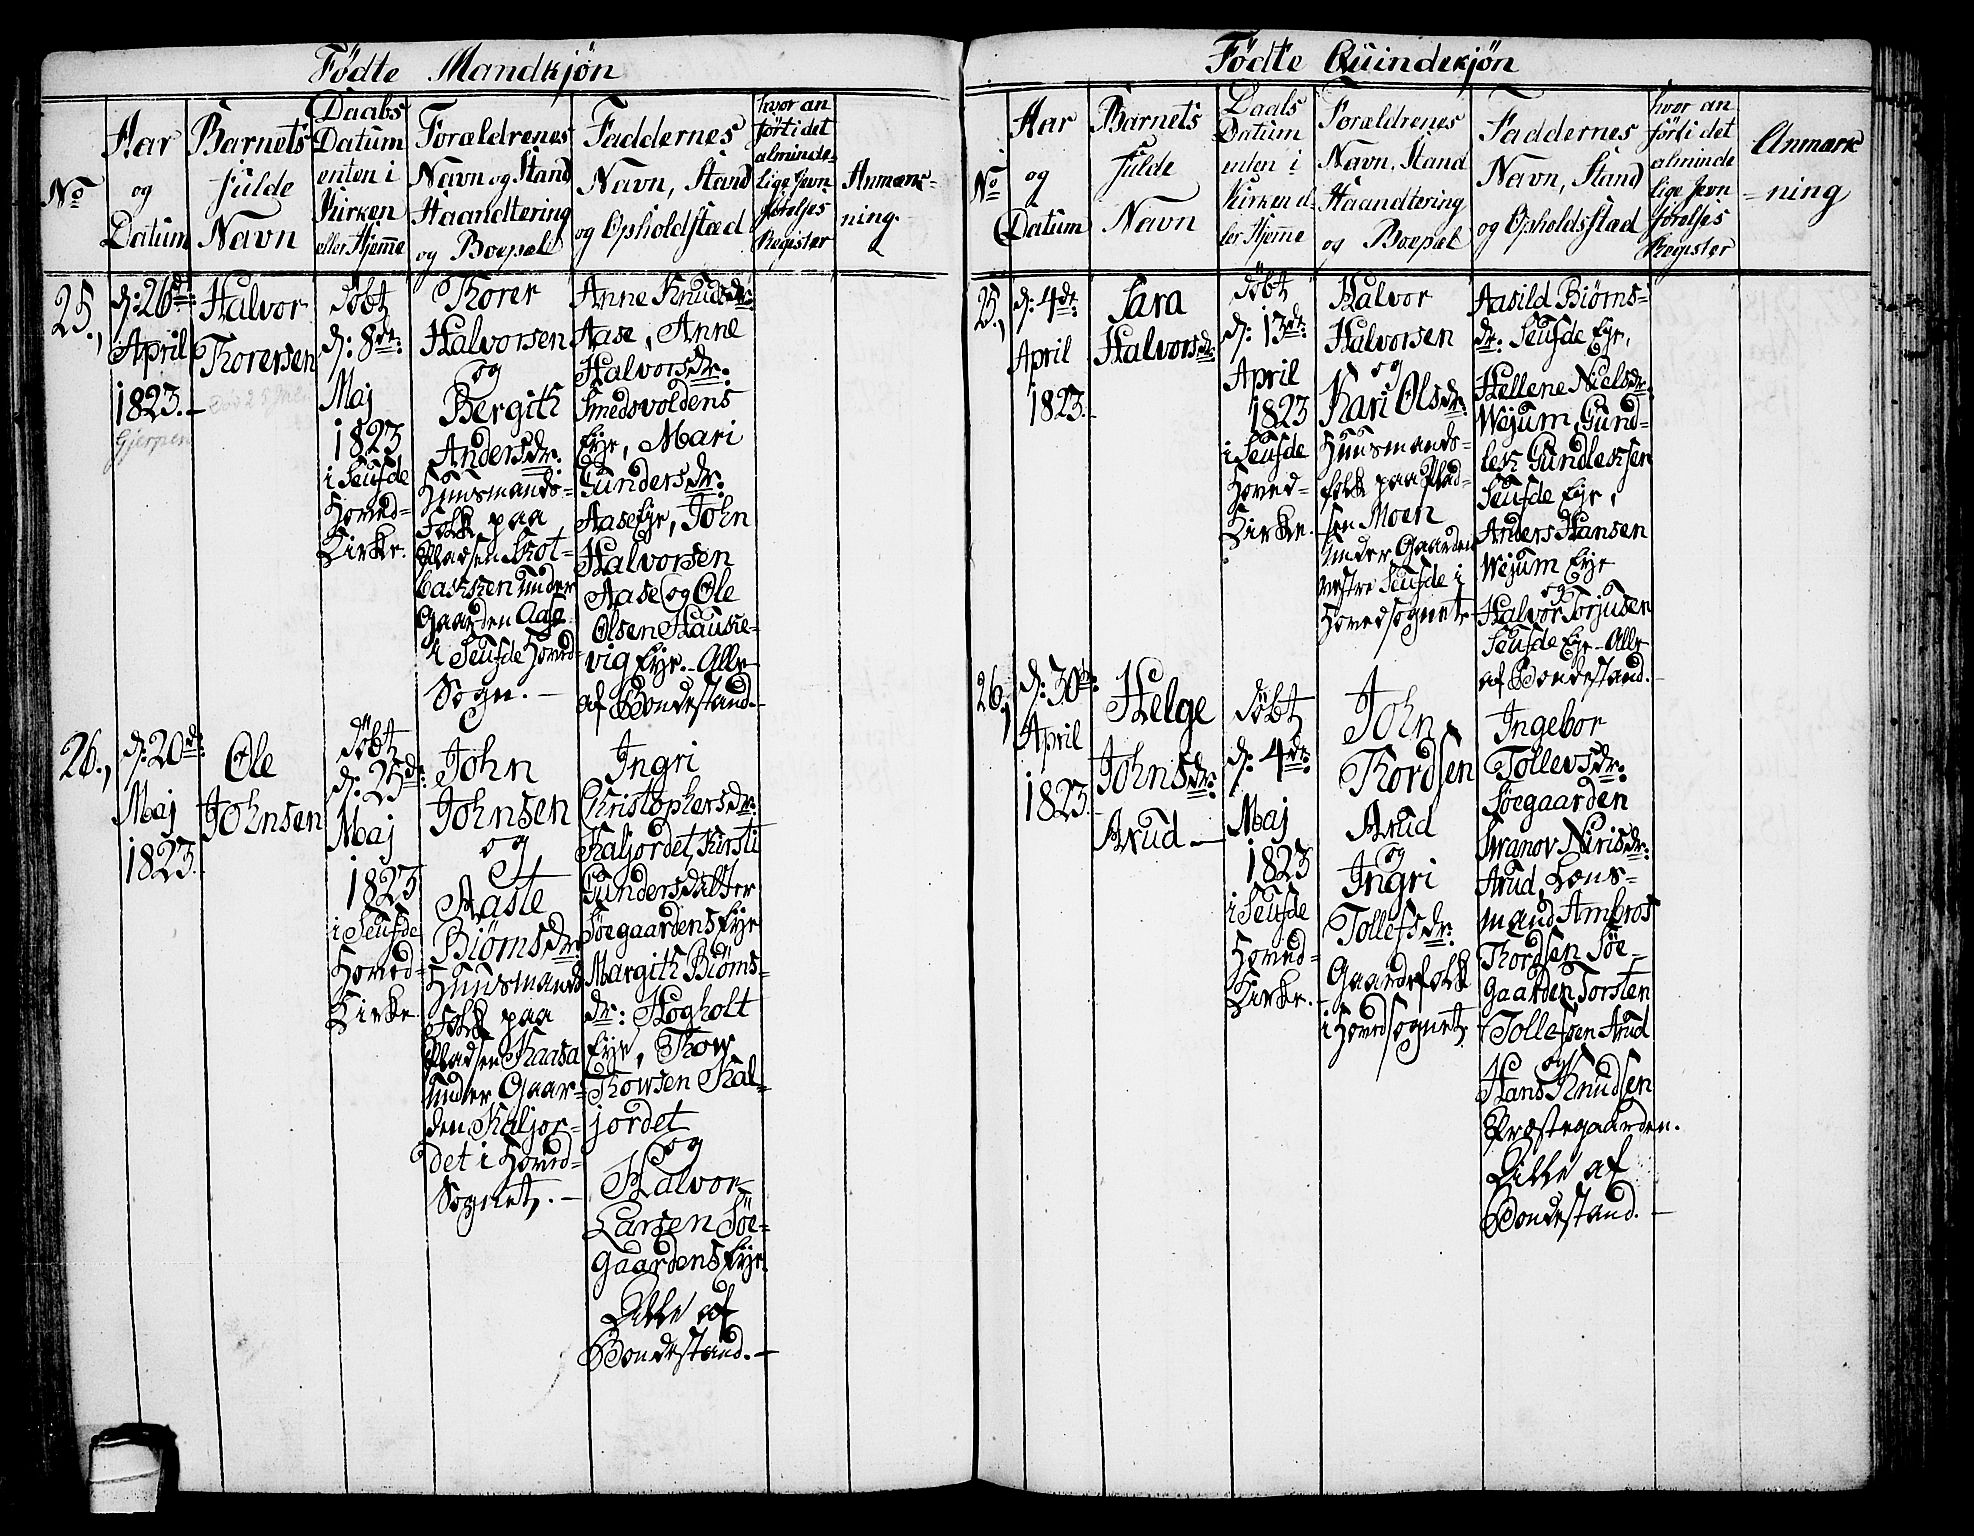 Födte Mandkjön
No
Aar
og
Datum
Barnets
fulde
Navn
Daabs
Datum
enten i
Kirken
eller Hjeme
Forældrenes
Navn og Stand
Haandtering
og Boepæl
Faddernes
Navn, Stand
og Opholdstad
hvor an
förti det
alminde-
lige Jevn
förelses
Register
Anmærk-
ning.
25.,
d: 26de:
April
1823.
Gjerpen
Halvor
Torersen
Döbt
d: 8de:
Maj
1823
i Seufde
Hoved-
Kirke.
Torer
Halvorsen
og
Bergith
Andersdr:
Huusmands-
Folk paa
Pladsen Skot-
bakken under
Gaarden Aase
i Seufde Hoved-
Sogn. —
Anne Knudsdr:
Aase, Anne
Halvorsdr:
Smedsvoldens
Eye, Mari
Gundersdr:
Aase Eye, John
Halvorsen
Aase og Ole
Olsen Hauke-
vig Eye. - Alle
af Bondestand. -
26.,
d: 20de:
Maj
1823.
Ole
Johnsen
Döbt
d: 25de:
Maj
1823
i Seufde
Hoved-
Kirke.
John
Johnsen
og
Aaste
Biörnsdr:
Huusmands
Folk paa
Pladsen Kaasa
under Gaar-
den Kaljor-
det i Hoved-
Sognet. —
Ingri
Christophersdr:
Kaljordet, Kirsti
Gundersdatter
Söegaardens Eye
Margith Biörns-
dr: Hogholt
Eye, Thow
Thowsen Kal-
jordet
og
Halvor
Larsen Söe-
gaardens Eye.
Alle af
Bondestand. —
Födte Quindekjön
No
Aar
og
Datum
Barnets
fulde
Navn
Daabs
Datum
enten i
Kirken el-
ler Hjeme
Forældrenes
Navn, Stand
Haandtering
og Boepæl
Faddernes
Navn, Stand
og Opholdsstad
hvor an
förti det
alminde
lige Jevn
förelses
Register
Anmærk
-ning
25.,
d: 4de
April
1823.
Sara
Halvorsdr:
Döbt
d: 13de:
April
1823
i Seufde
Hoved-
Kirke.
Halvor
Halvorsen
og
Kari Olsdr:
Huusmands-
folk paa Plad-
sen Moen
under Gaarden
vestre Seufde i
Hovedsognet
Aasild Biörns-
dr: Seufde Eye,
Hellene Nielsdr:
Wejum, Gund-
lek Gundleksen
Seufde Eye,
Anders Hansen
Wejum Eye
og
Halvor Torjusen
Seufde Eye - Alle
af Bondestand.
26.,
d: 30te:
April
1823.
Helge
Johnsdr:
Arud —
Döbt
d: 4de:
Maj
1823
i Seufde
Hoved-
Kirke. -
John
Thordsen
Arud
og
Ingri
Tollefsdr:
Gaardefolk
i Hovedsognet
Ingebor
Tollevsdr:
Söegaarden
Nirisdr:
Arud, Læns-
mand Ambros
Thordsen Söe-
gaarden, Torsten
Tollefsen Arud
og
Hans Knudsen
Præstegaarden.
Alle af
Bondestand. —